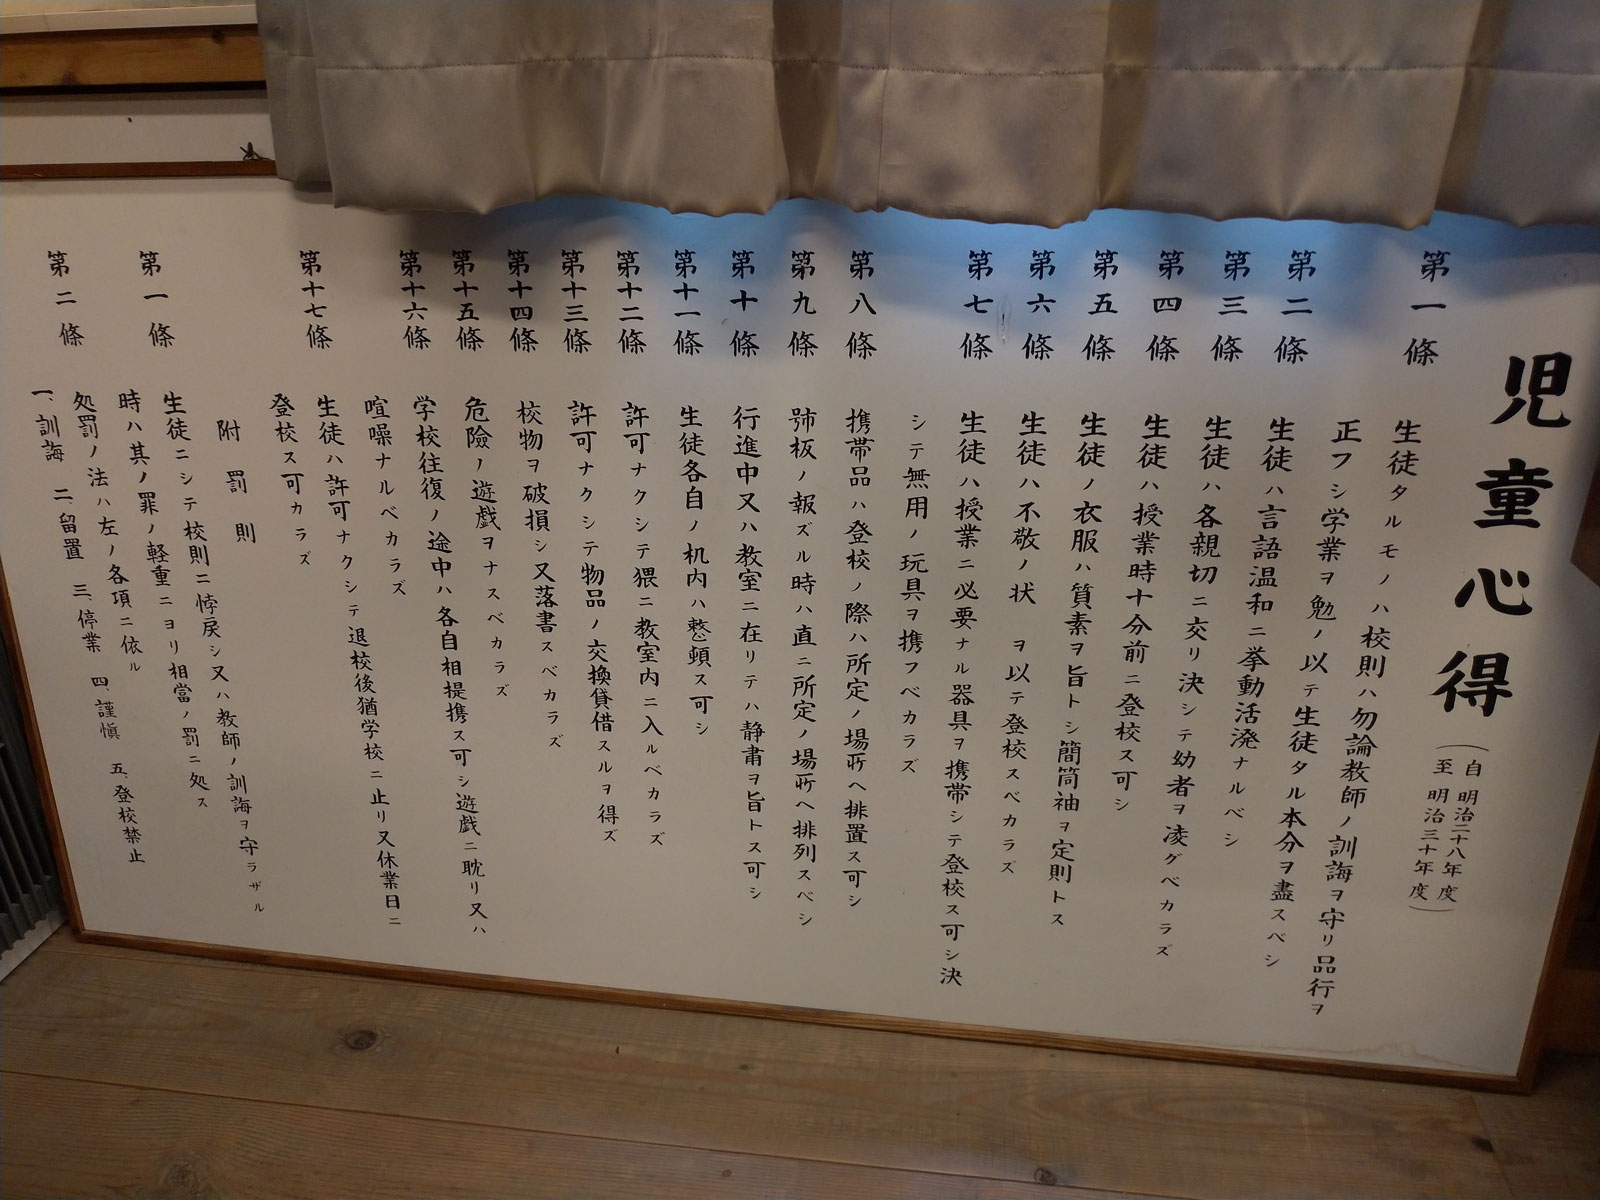 児童心得
(自 明治二十八年度
至 明治三十年度)
第一條 生徒タルモノハ校則ハ勿論教師ノ訓誨ヲ守リ品行ヲ
正フシ学業ヲ勉ノ以テ生徒タル本分ヲ盡スベシ
第二條 生徒ハ言語温和ニ挙動活溌ナルベシ
第三條 生徒ハ各親切ニ交リ決シテ幼者ヲ凌グベカラズ
第四條 生徒ハ授業時十分前ニ登校ス可シ
第五條 生徒ノ衣服ハ質素ヲ旨トシ簡筒袖ヲ定則トス
第六條 生徒ハ不敬ノ状 ヲ以テ登校スベカラズ
第七條 生徒ハ授業ニ必要ナル器具ヲ携帯シテ登校ス可シ決
シテ無用ノ玩具ヲ携フベカラズ
第八條 携帯品ハ登校ノ際ハ所定ノ場所ヘ排置ス可シ
第九條 号板ノ報ズル時ハ直ニ所定ノ場所ヘ排列スベシ
第十條 行進中又ハ教室ニ在リテハ静粛ヲ旨トス可シ
第十一條 生徒各自ノ机内ハ整頓ス可シ
第十二條 許可ナクシテ猥ニ教室内ニ入ルベカラズ
第十三條 許可ナクシテ物品ノ交換貸借スルヲ得ズ
第十四條 校物ヲ破損シ又落書スベカラズ
第十五條 危險ノ遊戯ヲナスベカラズ
第十六條 学校往復ノ途中ハ各自相提携ス可シ遊戯ニ耽リ又ハ
喧噪ナルベカラズ
第十七條 生徒ハ許可ナクシテ退校後猶学校ニ止リ又休業日ニ
登校ス可カラズ
附罰則
第一條 生徒ニシテ校則ニ悖戻シ又ハ教師ノ訓誨ヲ守ラザル
時ハ其ノ罪ノ軽重ニヨリ相當ノ罰ニ処ス
第二條 処罰ノ法ハ左ノ各項ニ依ル
一、訓誨 二、留置 三、停業 四、謹愼 五、登校禁止